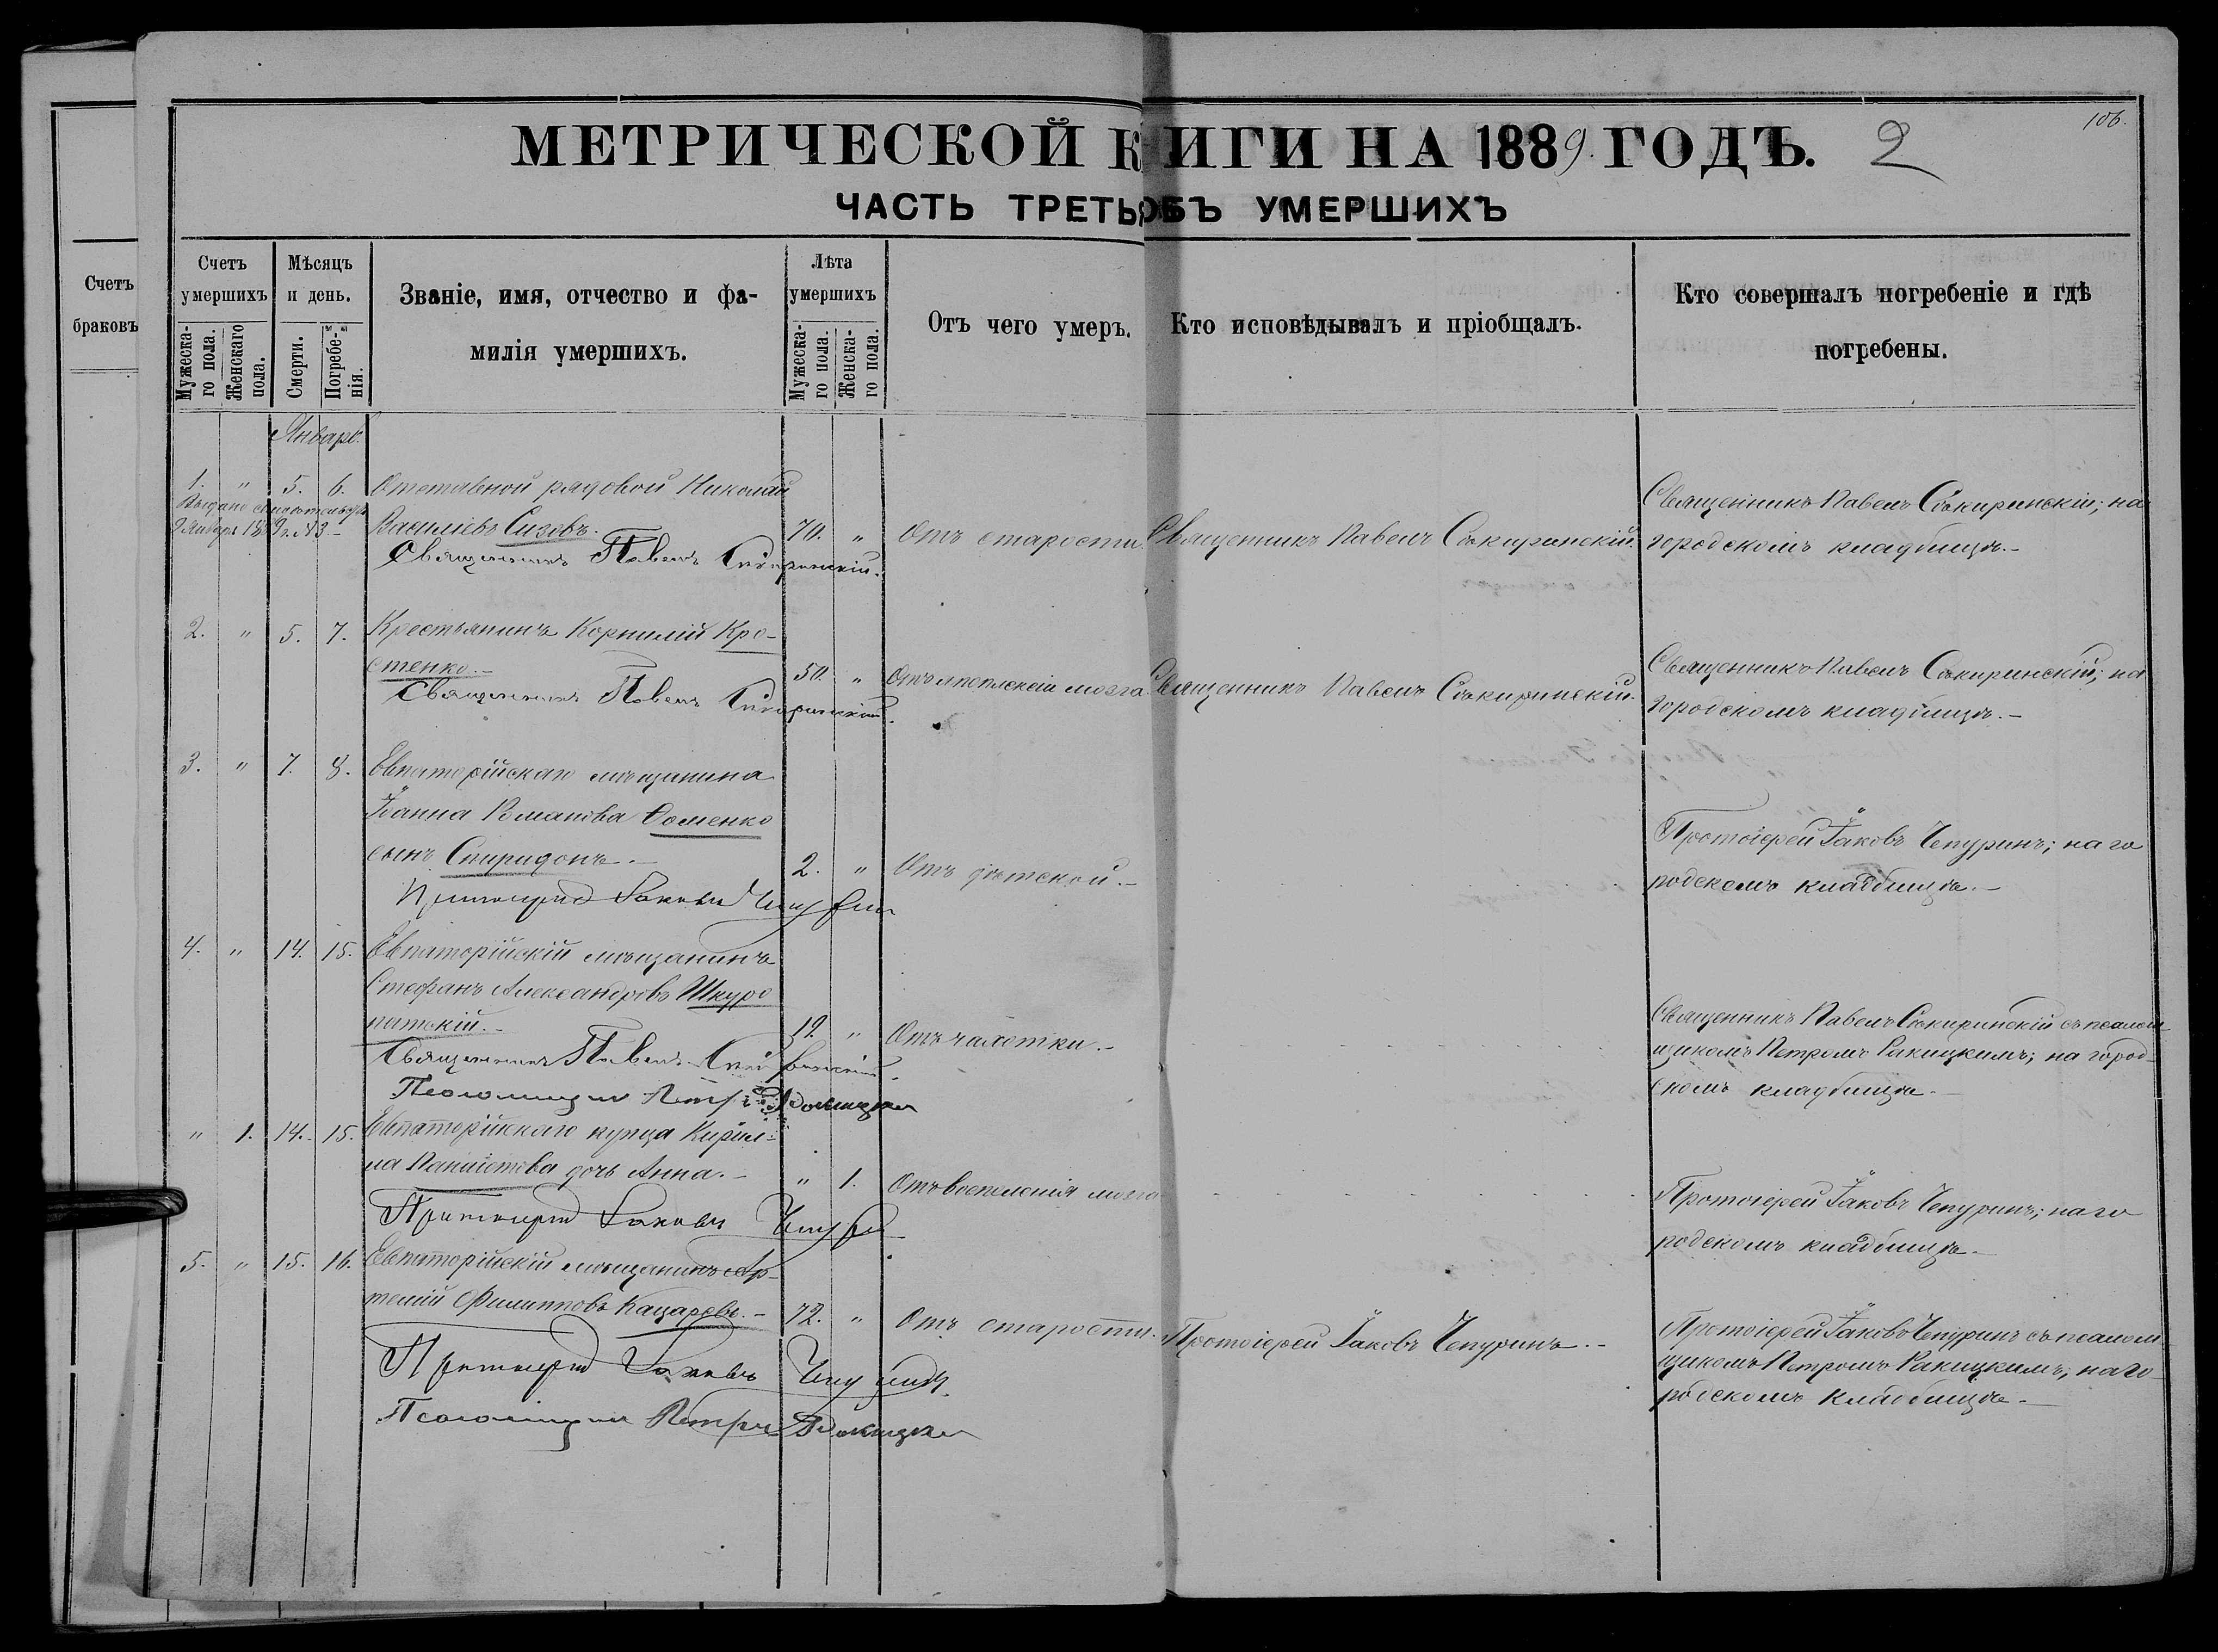 106.
МЕТРИЧЕСКОЙ К ИГИ НА 1889. ГОДЪ. 2
ЧАСТЬ ТРЕТЬЯ ОБЪ УМЕРШИХЪ
Счетъ
браковъ
Счетъ
умершихъ
Мужеска-
го пола.
Женскаго
пола.
Мѣсяцъ
и день.
Смерти.
Погребе-
нія.
Званіе, имя, отчество и фа-
милія умершихъ.
Лѣта
умершихъ
Мужеска-
го пола.
Женска-
го пола.
Отъ чего умеръ.
Кто исповѣдывалъ и пріобщалъ.
Кто совершалъ погребеніе и гдѣ
погребены.
Январь.
1. " 5. 6. Отставной рядовой Николай
Выдано свидѣтельство
9 Января 1889 г. № 3.-
Васильевъ Сизовъ. 70. " Отъ старости. Священникъ Павелъ Сѣкиринскій.
Священникъ Павелъ Сѣкиринскій; на
городскомъ кладбищѣ.-
Священникъ Павелъ Сѣкиринскій.
2. " 5. 7. Крестьянинъ Корнилій Кро-
стенко.- 50. " Священникъ Павелъ Сѣкиринскій.
Священникъ Павелъ Сѣкиринскій; на
городскомъ кладбищѣ.-
Священникъ Павелъ Сѣкиринскій.
3. " 7. 8. Евпаторійскаго мѣщанина
Іоанна Романова Ѳоменко
сынъ Спиридонъ.- 2. " Отъ дѣтской.-
Протоіерей Іаковъ Чепуринъ; на го
родскомъ кладбищѣ.-
Протоіерей Іаковъ Чепуринъ
4. " 14. 15. Евпаторійскій мѣщанинъ
Стефанъ Александровъ Шкуро
патскій.- 19. " Отъ чахотки.-
Священникъ Павелъ Сѣкиринскій съ псалом-
щикомъ Петромъ Ракицкимъ; на город-
скомъ кладбищѣ.-
Священникъ Павелъ Сѣкиринскій.
Псаломщикъ Петръ Ракицкій
" 1. 14. 15. Евпаторійскаго купца Кирил-
ла Панаіотова дочь Анна.- " 1. Отъ воспаленія мозга
Протоіерей Іаковъ Чепуринъ; на го
родскомъ кладбищѣ.-
Протоіерей Іаковъ Чепуринъ
5. " 15. 16. Евпаторійскій мѣщанинъ Ар-
темій Филипповъ Кацаровъ.- 72. " Отъ старости. Протоіерей Іаковъ Чепуринъ.-
Протоіерей Іаковъ Чепуринъ съ псалом
щикомъ Петромъ Ракицкимъ; на го-
родскомъ кладбищѣ.-
Протоіерей Іаковъ Чепуринъ.
Псаломщикъ Петръ Ракицкій